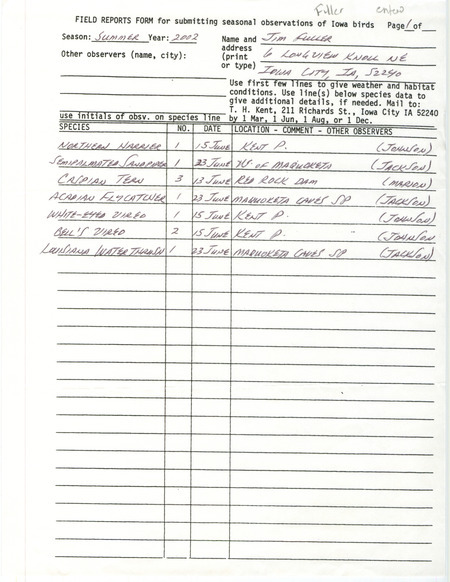 Fuller entered
FIELD REPORTS FORM for submitting seasonal observations of Iowa birds Page/of
Season: SUMMER Year: 2002 Name and JIM FULLER
Other observers (name, city): address 6 LONGVIEW KNOLL NE
(print
or type) IOWA CITY, IA, 52240
Use first few lines to give weather and habitat
conditions. Use line(s) below species data to
give additional details, if needed. Mail to:
T. H. Kent, 211 Richards St., Iowa City IA 52240
use initials of obsv. on species line by 1 Mar, 1 Jun, 1 Aug, or 1 Dec.
SPECIES NO. DATE LOCATION - COMMENT - OTHER OBSERVERS
NORTHERN HARRIER 1 15 JUNE KENT P. (JOHNSON)
SEMIPALMATED SANDPIPER 1 23 JUNE OF MAQUOKETA (JACKSON)
CASPIAN TERN 3 13 JUNE RED ROCK DAM (MARION)
ACADIAN FLYCATCHER 1 23 JUNE MAQUOKETA CAVES SP (JACKSON)
WHITE-EYED VIREO 1 15 JUNE KENT P. (JOHNSON)
BELL'S VIREO 2 15 JUNE KENT P. (JOHNSON
LOUISIANA WATERTHRUSH 1 23 JUNE MAQUOKETA CAVES SP (JACKSON)